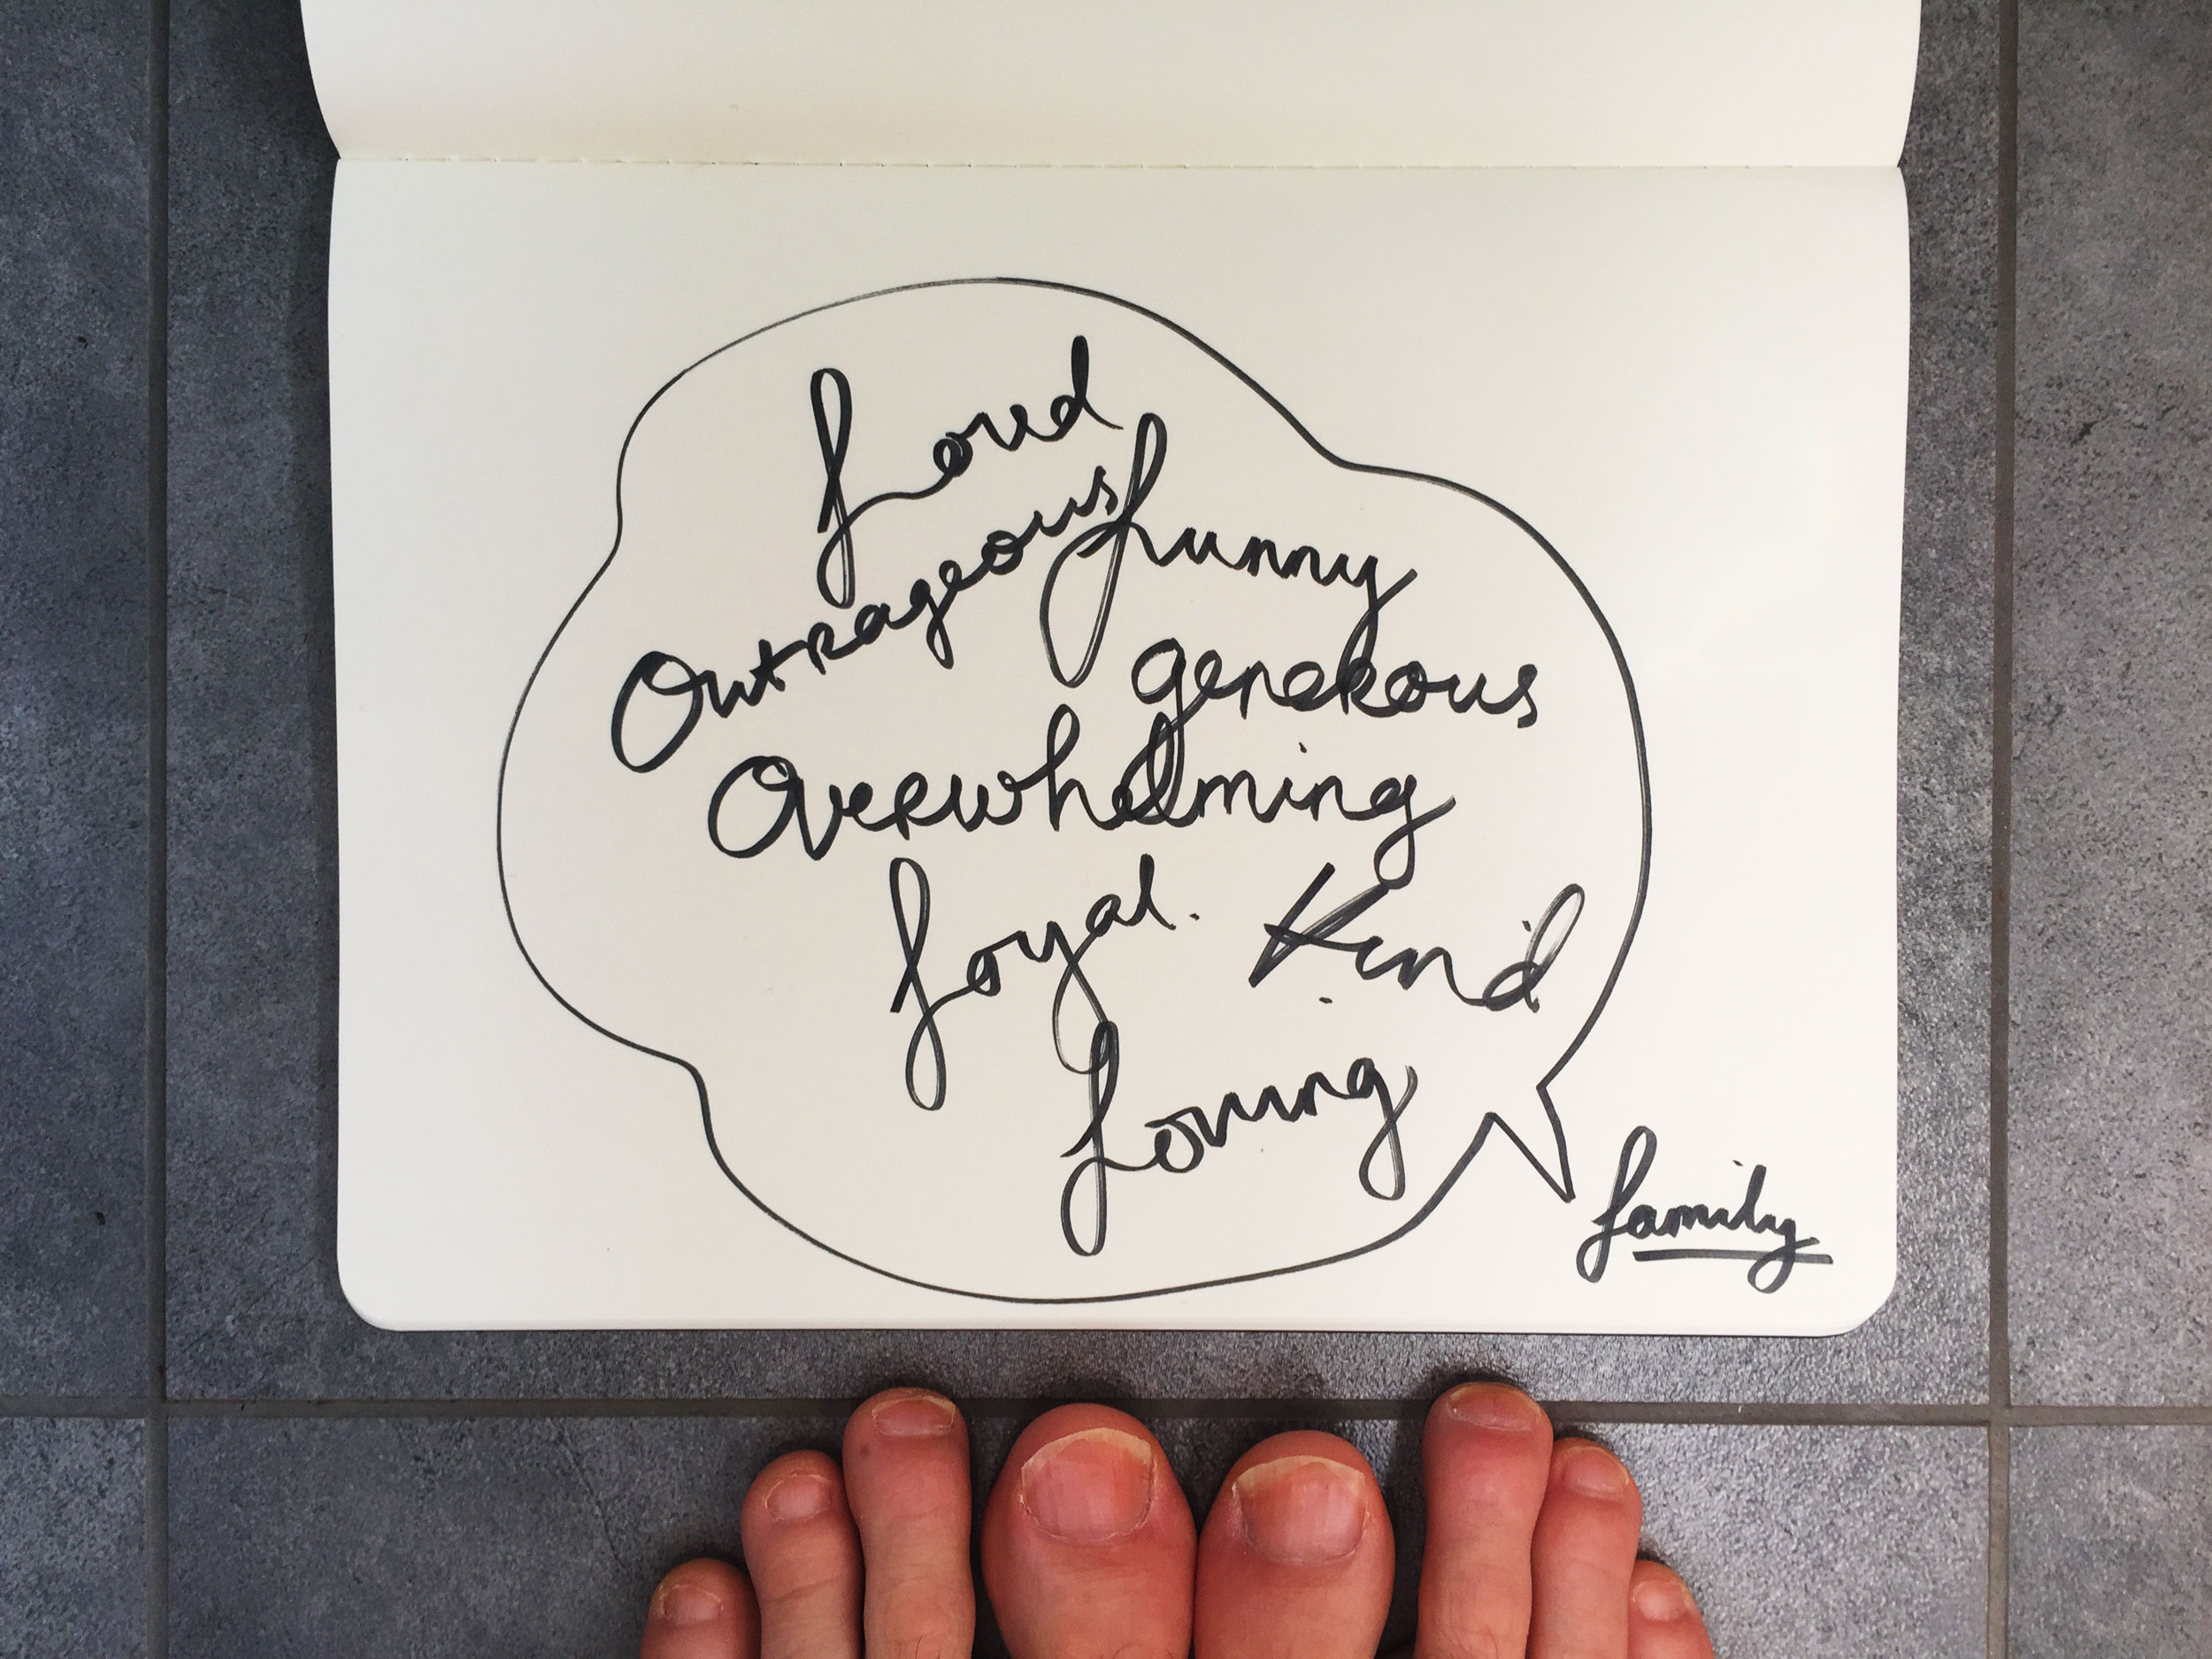 Loved
Outrageous funny
generous
Overwhelming
Loyal. Kind
Loving
family